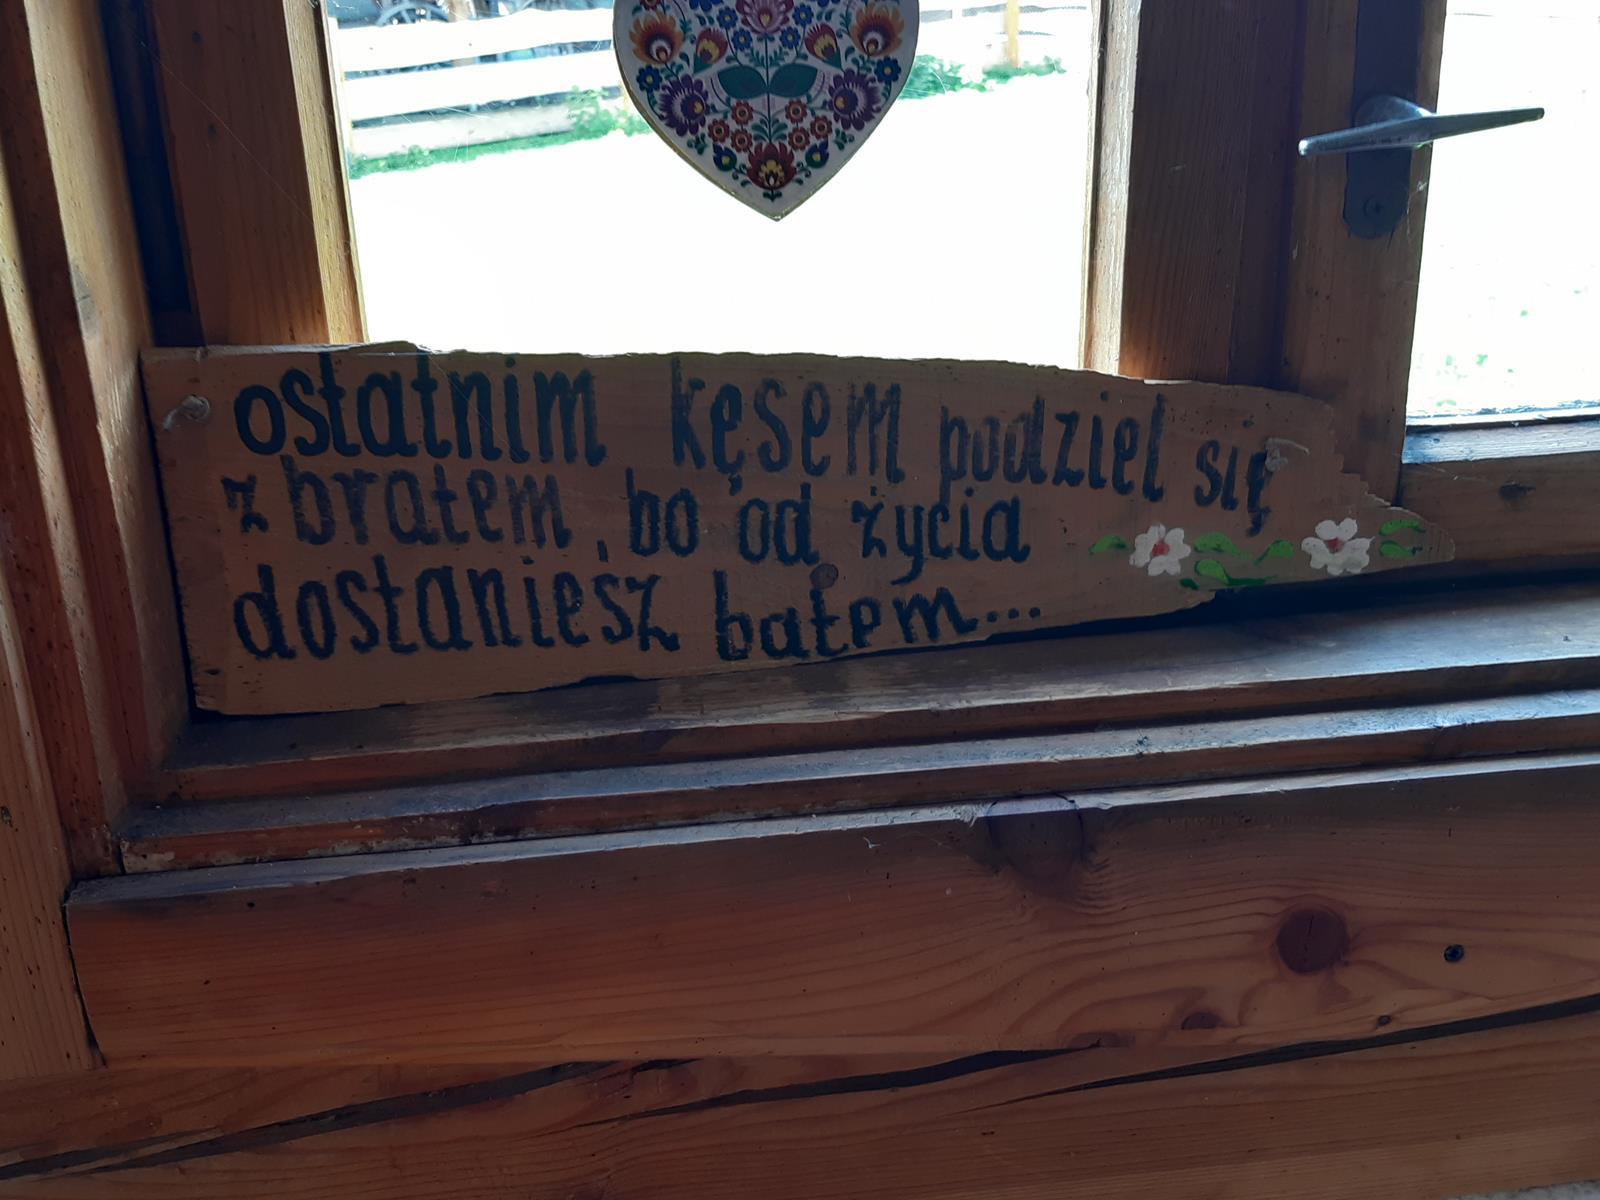 ostatnim kęsem podziel się
z bratem, bo od życia
dostaniesz batem...